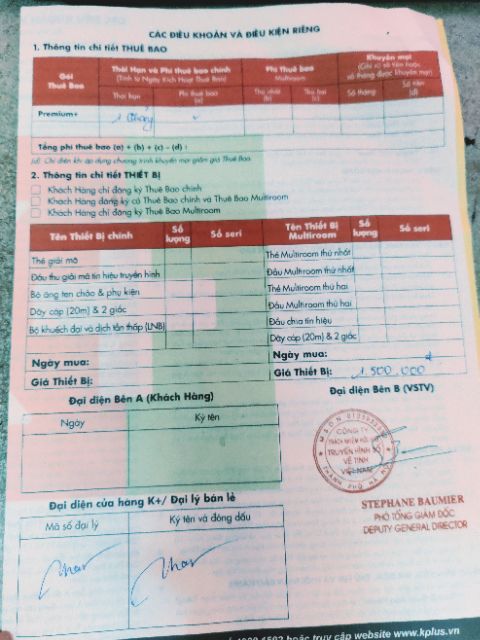 CÁC ĐIỀU KHOẢN VÀ ĐIỀU KIỆN RIÊNG
1. Thông tin chi tiết THUÊ BAO
Gói Thuê Bao
Thời Hạn và Phí thuê bao chính
(Tính từ Ngày Kích Hoạt Thuê Bao)
Phí Thuê bao Multiroom
Khuyến mại
(Ghi rõ số tiền hoặc số tháng được khuyến mại)
Thời hạn
Phí thuê bao (a)
Thứ nhất (b)
Thứ hai (c)
Số tháng
Số tiền (d)
Premium+
1 tháng
Tổng phí thuê bao (a) + (b) + (c) - (d) :
(d): Chỉ điền khi áp dụng chương trình khuyến mại giảm giá Thuê Bao.
2. Thông tin chi tiết THIẾT BỊ
Khách Hàng chỉ đăng ký Thuê Bao chính
Khách Hàng đăng ký cả Thuê Bao chính và Thuê Bao Multiroom
Khách Hàng chỉ đăng ký Thuê Bao Multiroom
Tên Thiết Bị chính
Số lượng
Số seri
Tên Thiết Bị Multiroom
Số lượng
Số seri
Thẻ giải mã
Thẻ Multiroom thứ nhất
Đầu thu giải mã tín hiệu truyền hình
Đầu Multiroom thứ nhất
Bộ ăng ten chảo & phụ kiện
Thẻ Multiroom thứ hai
Dây cáp (20m) & 2 giắc
Đầu Multiroom thứ hai
Bộ khuếch đại và dịch tần thấp (LNB)
Đầu chia tín hiệu
Dây cáp (20m) & 2 giắc
Ngày mua:
Ngày mua:
Giá Thiết Bị:
Giá Thiết Bị: 1.500.000 đ
Đại diện Bên A (Khách Hàng)
Đại diện Bên B (VSTV)
Ngày
Ký tên
CÔNG TY
TRÁCH NHIỆM HỮU HẠN
TRUYỀN HÌNH SỐ
VỆ TINH
VIỆT NAM
THÀNH PHỐ HÀ NỘI
STEPHANE BAUMIER
PHÓ TỔNG GIÁM ĐỐC
DEPUTY GENERAL DIRECTOR
Đại diện cửa hàng K+/ Đại lý bán lẻ
Mã số đại lý
Ký tên và đóng dấu
hoặc truy cập website www.kplus.vn